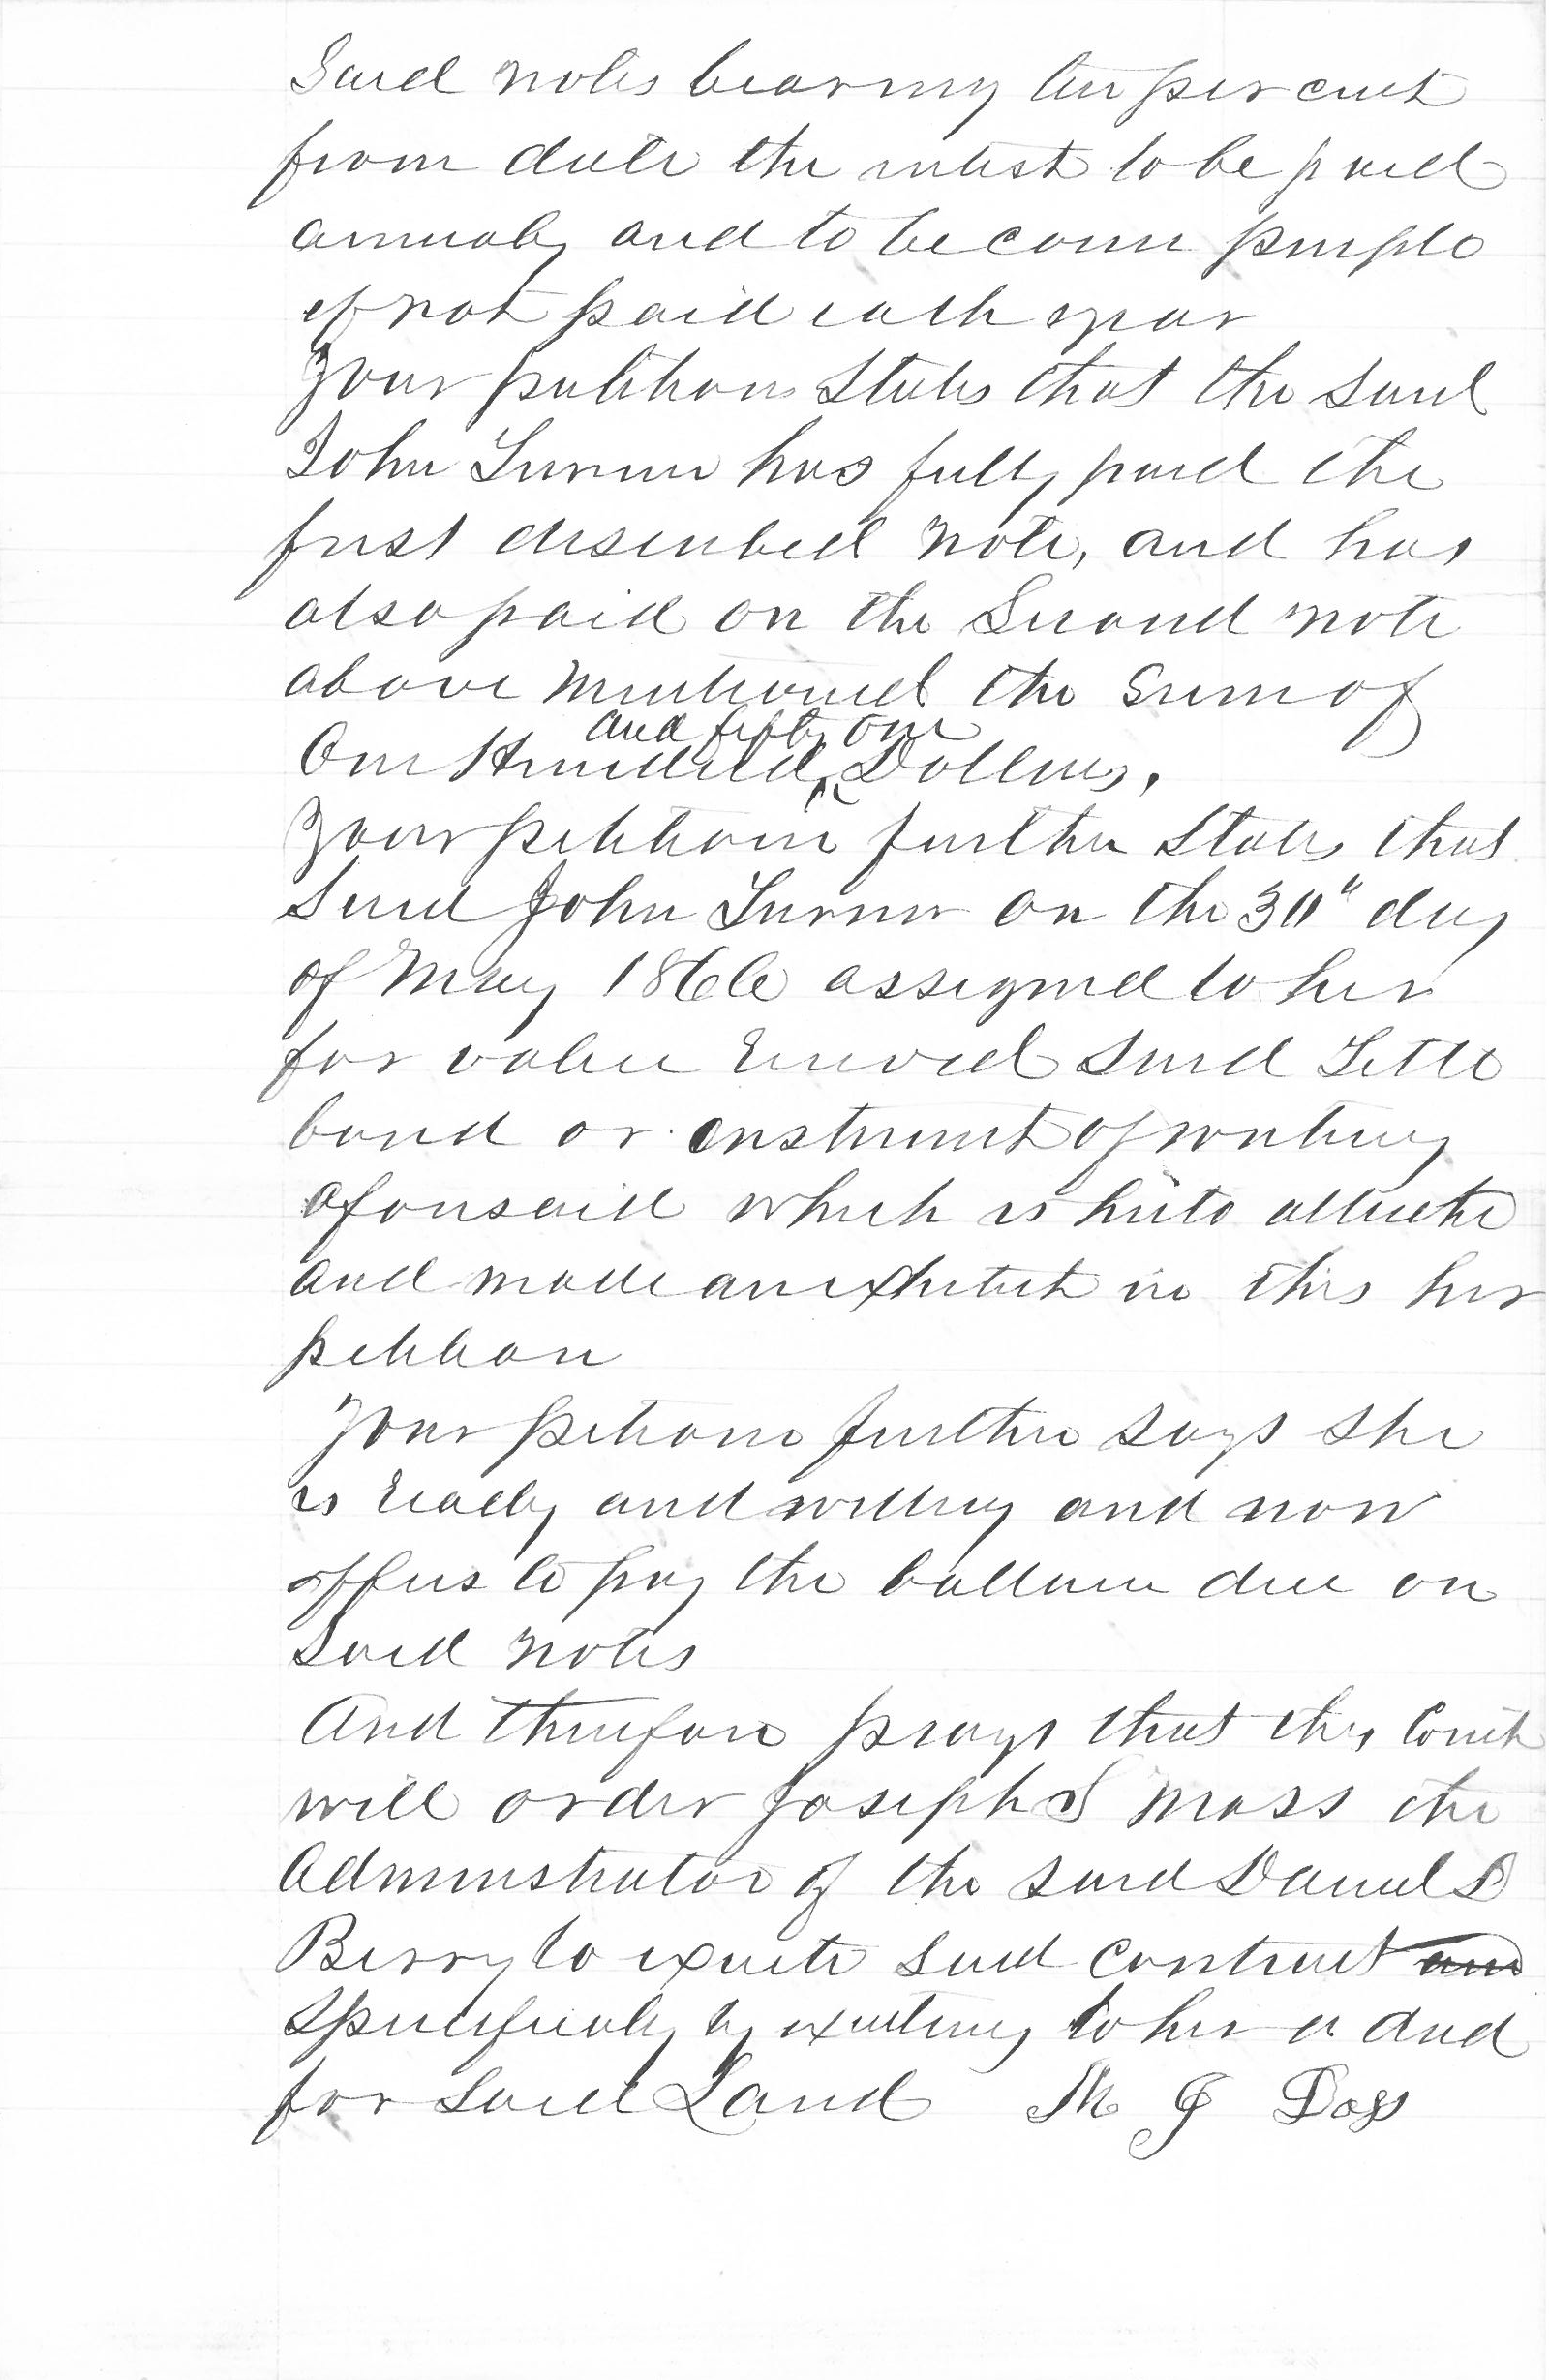 Said notes bearing ten per cent
from date the intrest to be paid
annualy and to become principle
if not paid each year
Your petitioner States that the said
John Turner has fully paid the
first discribed note, and has
also paid on the Second note
above mentioned the Sum of
One Hundred and fifty one Dollars,
Your petitioner further States that
Said John Turner on the 30" day
of May 1866 assigned to her
for value Received Said Title
bond or instrument of writing
aforesaid which is hereto attached
and made an exhibit in this her
petition
Your petitioner further says she
is ready and willing and now
offers to pay the ballance due on
Said notes
And therefore prays that this Court
will order Joseph S Moss the
Administrator of the said Daniel B
Berry to execute said contract
Specifically by executing to her a deed
for said Land M J